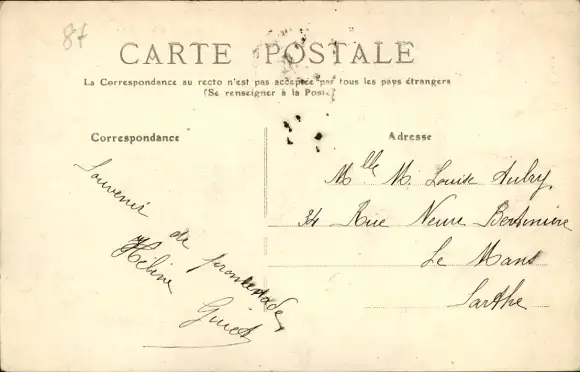 87
CARTE POSTALE
La Correspondance au recto n'est pas acceptée par tous les pays étrangers
(Se renseigner à la Poste)
Correspondance
Souvenir de promenade
Hélène
Adresse
Mlle M. Louise Aubry,
34 Rue Neuve Bertinière
Le Mans
Sarthe